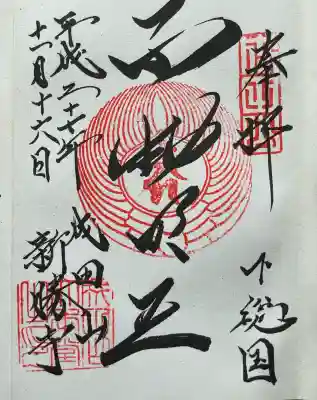 奉拝
下総国
不動明王
平成二十七年
十一月十六日
成田山
新勝寺